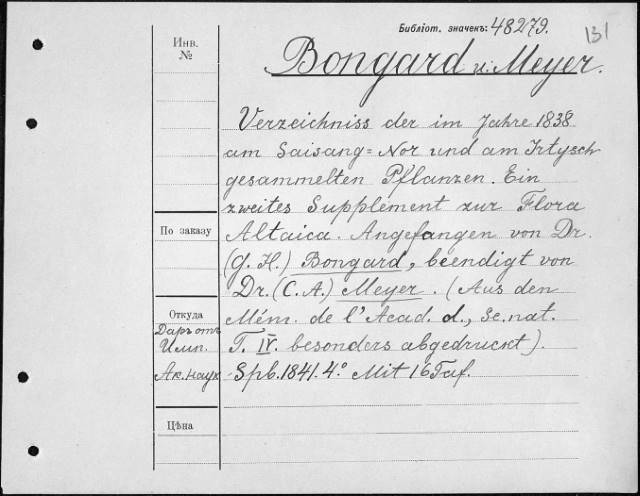 Библіот. значекъ: 48279.
131
Инв.
№
Bongard u. Meyer.
Verzeichniss der im Jahre 1838
am Saisang=Nor und am Irtysch
gesammelten Pflanzen. Ein
zweites Supplement zur Flora
По заказу
Altaica. Angefangen von Dr.
(G. H.) Bongard, beendigt von
Dr. (C. A.) Meyer. (Aus den
Откуда
Mém. de l'Acad. d., Sc. nat.
Даръ отъ
Имп.
T. IV. besonders abgedruckt).
Ак. наук
Spb. 1841. 4.º Mit 16 Taf.
Цѣна